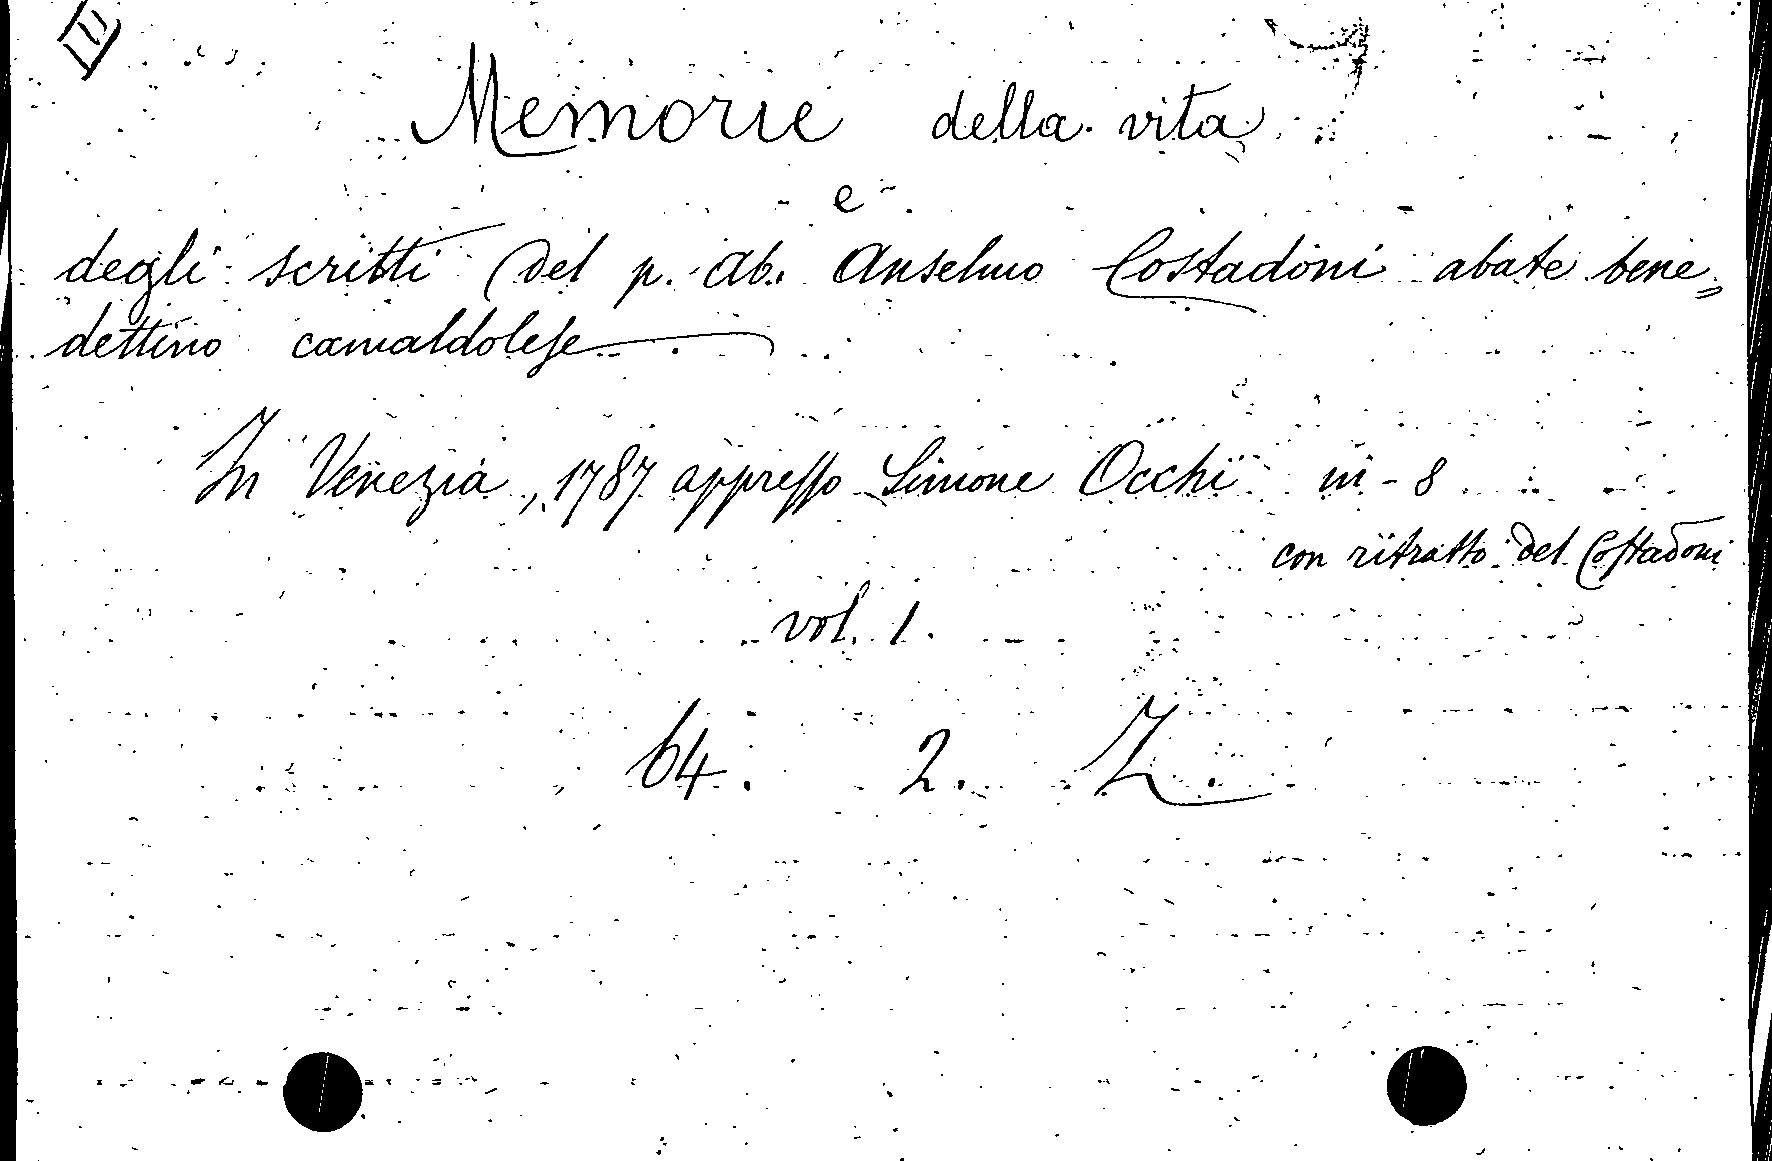 Memorie della vita
e
degli scritti del p. Ab. Anselmo Costadoni abate bene=
dettino camaldolese
In Venezia, 1787 appresso Simone Occhi in-8
con ritratto del Costadoni
vol. 1.
64. 2. Z.